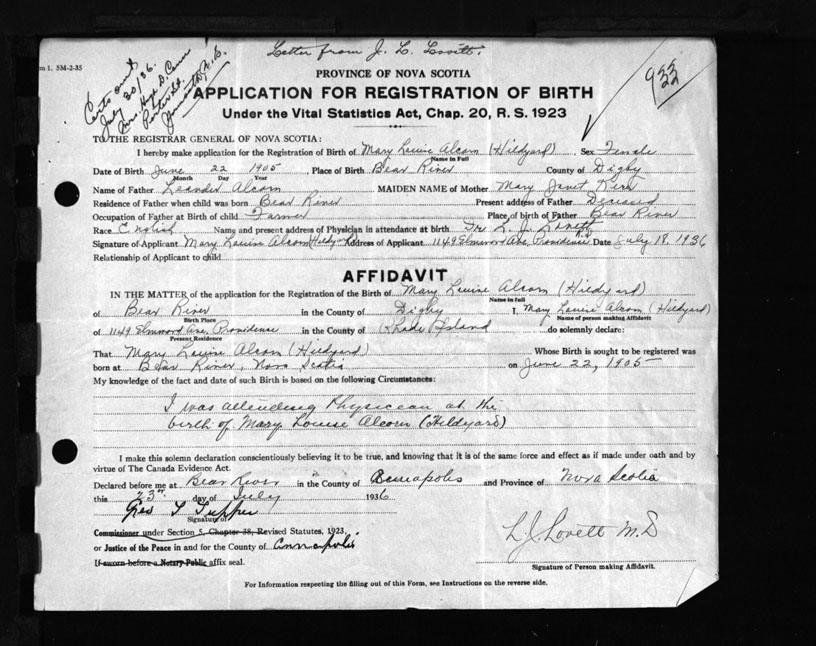 Letter from J. L. Lovitt.
m 1. 5M-2-35
Certs out
July 30/36.
933
PROVINCE OF NOVA SCOTIA
APPLICATION FOR REGISTRATION OF BIRTH
Under the Vital Statistics Act, Chap. 20, R. S. 1923
TO THE REGISTRAR GENERAL OF NOVA SCOTIA:
I hereby make application for the Registration of Birth of Mary Louise Alcorn (Hildyard) Sex Female
Name in Full
Date of Birth June 22 1905, Place of Birth Bear River County of Digby
Month Day Year
Name of Father Leander Alcorn MAIDEN NAME of Mother Mary Janet Kerr
Residence of Father when child was born Bear River Present address of Father Deceased
Occupation of Father at Birth of child Farmer Place of birth of Father Bear River
Race English Name and present address of Physician in attendance at birth Dr L. J. Lovett
Signature of Applicant Mary Louise Alcorn (Hildyard) Address of Applicant 1149 Elmwood Ave, Providence Date July 18, 1936
Relationship of Applicant to child
AFFIDAVIT
IN THE MATTER of the application for the Registration of the Birth of Mary Louise Alcorn (Hildyard)
Name in full
of Bear River in the County of Digby I, Mary Louise Alcorn (Hildyard)
Birth Place Name of person making Affidavit
of 1149 Elmwood Ave, Providence in the County of Rhode Island do solemnly declare:
Present Residence
That Mary Louise Alcorn (Hildyard) Whose Birth is sought to be registered was
born at Bear River, Nova Scotia on June 22, 1905
My knowledge of the fact and date of such Birth is based on the following Circumstances:
I was attending Physicean at the
birth of Mary Louise Alcorn (Hildyard)
I make this solemn declaration conscientiously believing it to be true, and knowing that it is of the same force and effect as if made under oath and by
virtue of The Canada Evidence Act.
Declared before me at Bear River in the County of Annapolis and Province of Nova Scotia
this 23rd day of July 1936
Geo T Tupper
Signature of
Commissioner under Section 5, Chapter 38, Revised Statutes, 1923,
or Justice of the Peace in and for the County of Annapolis
L. J. Lovett M.D
If sworn before a Notary Public affix seal.
Signature of Person making Affidavit.
For Information respecting the filling out of this Form, see Instructions on the reverse side.